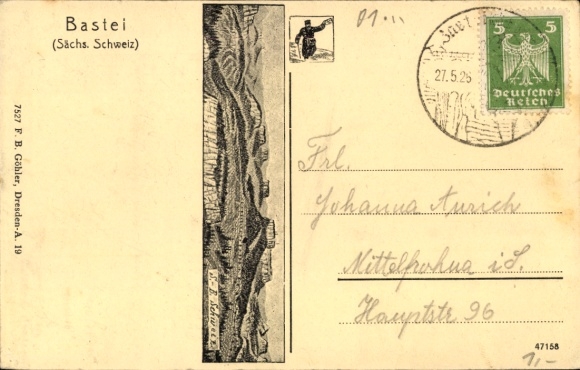 Bastei
(Sächs. Schweiz)
7527 F. B. Göhler, Dresden-A. 19
S.-B. Schweiz
01...
27.5.26
5 5
Deutsches
Reich
Frl.
Johanna Aurich
Mittelfrohna i. S.
Hauptstr. 96
47158
1,-